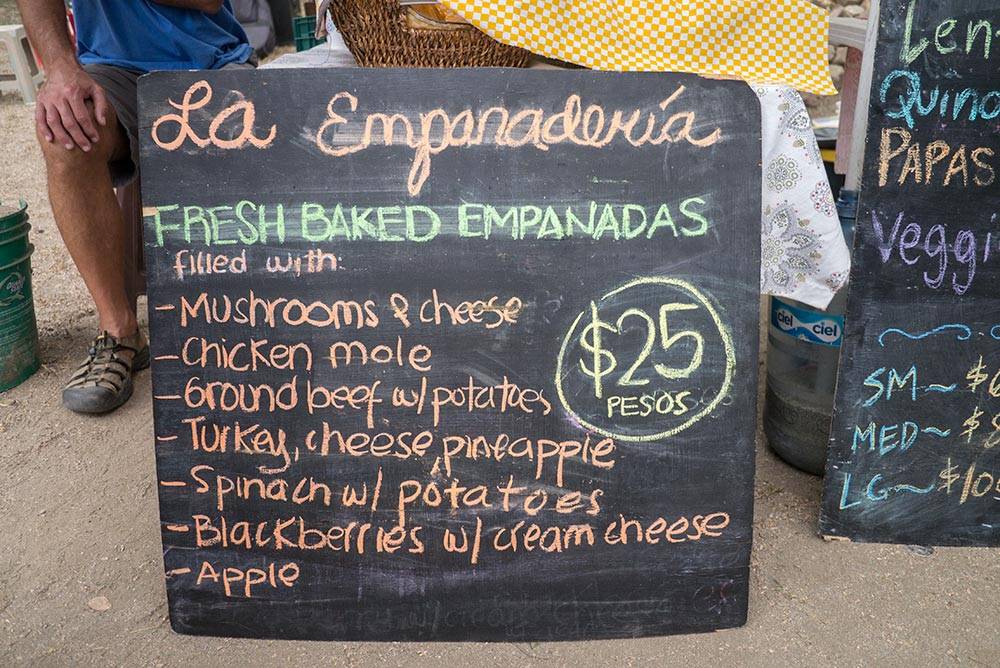 La Empanadería
FRESH BAKED EMPANADAS
filled with:
- Mushrooms & cheese
- Chicken mole
- Ground beef w/ potatoes
- Turkey, cheese, pineapple
- Spinach w/ potatoes
- Blackberries w/ cream cheese
- Apple
$25
PESOS
ciel ciel
Len
Quino
PAPAS
Veggi
SM~ $
MED~ $
LG~ $10